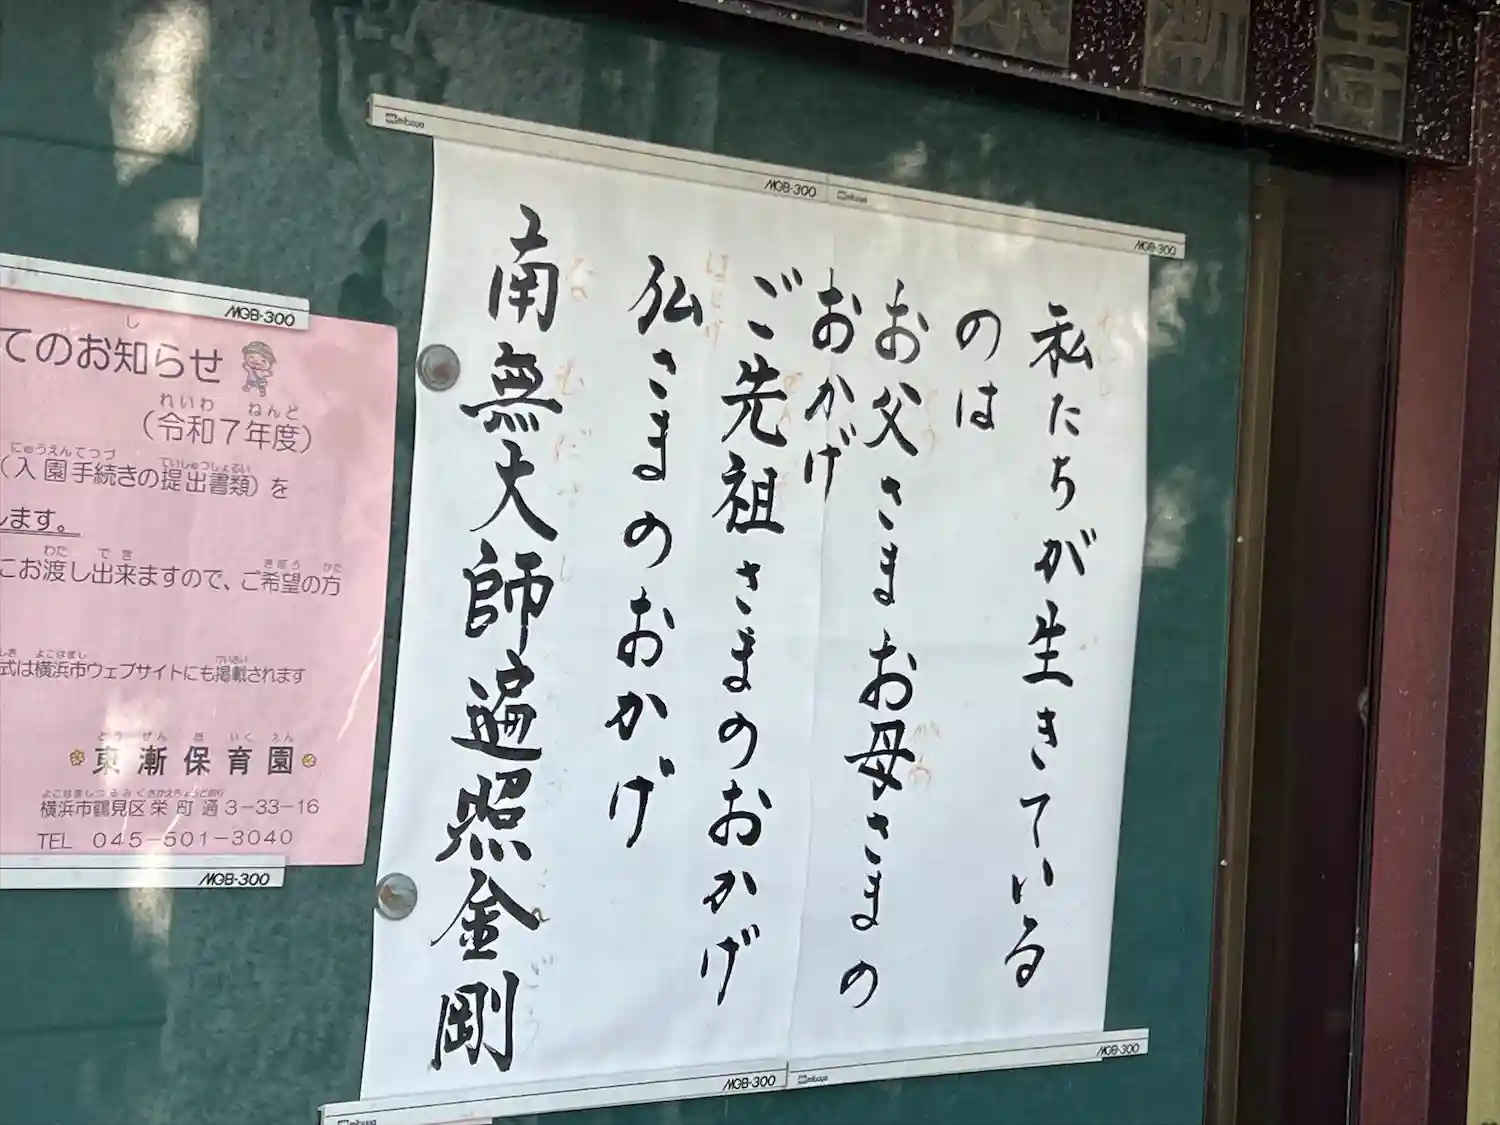 私たちが生きている
のは
お父さまお母さまの
おかげ
ご先祖さまのおかげ
仏さまのおかげ
南無大師遍照金剛
てのお知らせ
(令和7年度)
(入園手続きの提出書類)を
します。
にお渡し出来ますので、ご希望の方
式は横浜市ウェブサイトにも掲載されます
東漸保育園
横浜市鶴見区栄町通3-33-16
TEL 045-501-3040
MGB-300
MGB-300
MGB-300
MGB-300
MGB-300
MGB-300